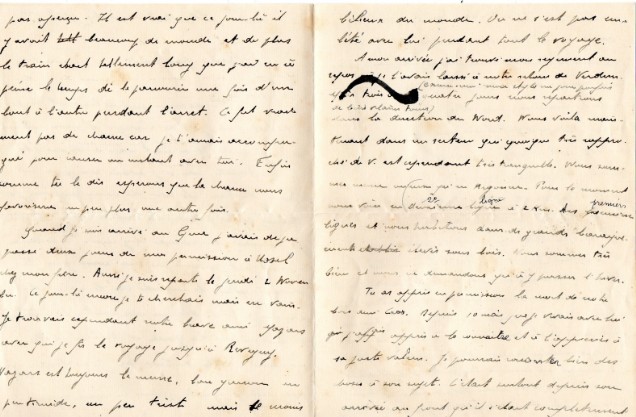 pas aperçu. Il est vrai que ce jour-là il
y avait beaucoup de monde et de plus
le train était tellement long que j'ai eu à
peine le temps de le parcourir une fois d'un
bout à l'autre pendant l'arrêt. Ce fut vrai-
ment pas de chance car je t'aurais accompa-
gné pour causer un instant avec toi. Enfin
comme tu le dis espérons que la chance nous
favorisera un peu plus une autre fois.
Quand je suis arrivé au j'avais déjà
passé deux jours de ma permission à Ussel
chez mon père. Aussi je suis reparti le jeudi 2 Novem
bre. Ce jour-là encore je te cherchais mais en vain.
Je trouvais cependant notre brave ami Vazars
avec qui je fis le voyage jusqu'à Revigny.
Vazars est toujours le même, bon garçon un
peu timide, un peu triste mais le moins
bilieux du monde. On ne s'est pas em-
bêté avec lui pendant tout le voyage.
A mon arrivée j'ai trouvé mon régiment au
repos où je l'avais laissé à notre retour de Verdun.
trois ou quatre jours nous repartions
dans la direction du Nord. Nous voilà main-
tenant dans un secteur qui quoique très rappro-
ché de V. est cependant très tranquille. Nous
Pour le moment
nous voilà en deuxième ligne à 2 km. des premières
lignes et nous habitons dans de grands baraque-
ments établis sous bois. Nous sommes très
bien et nous ne demandons qu'à y passer l'hiver.
Tu as appris en permission la mort de notre
ami Depuis 10 mois que je vivais avec lui
j'ai appris à le connaître et à l'apprécier à
sa juste valeur. Je pourrais raconter bien des
choses à son sujet. C'était surtout depuis son
arrivée au front qu'il s'était complètement